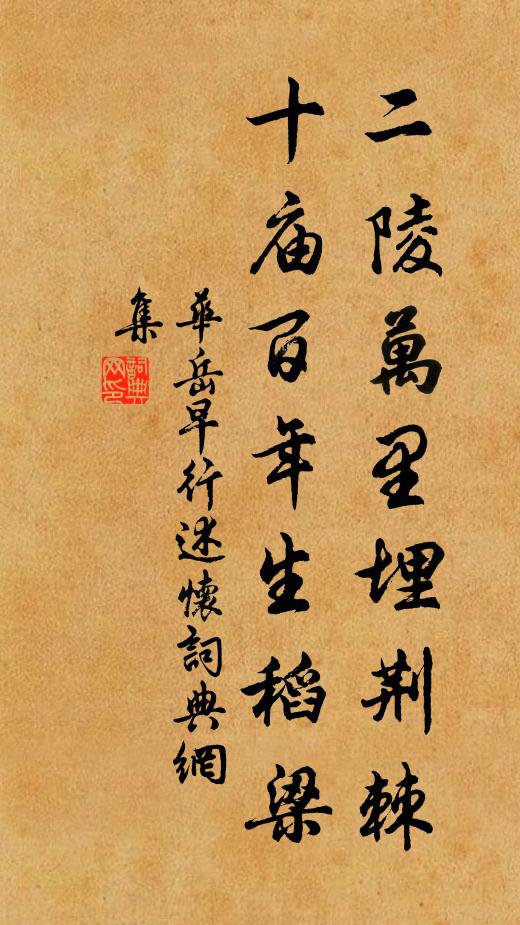 二陵萬里埋荆棘
十庙百年生稻梁
華岳早行述懷詞典網
集
詞典网印